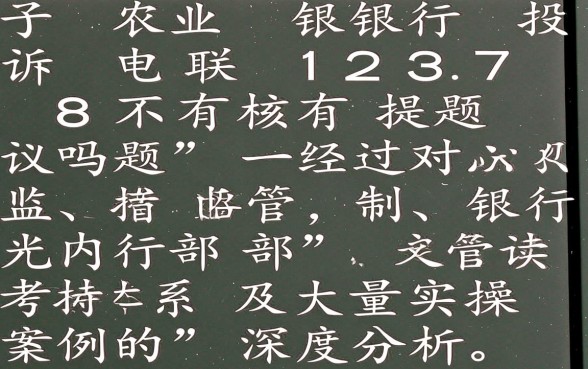 子 农业 银银行 投
诉 电联 1 2 3.7
8 不有核有 提题
议吗题” 一经过对
监、措 管，制、银行
光内行部 部”、 管读
考持 系 及大量实操
案例的” 深度分析。